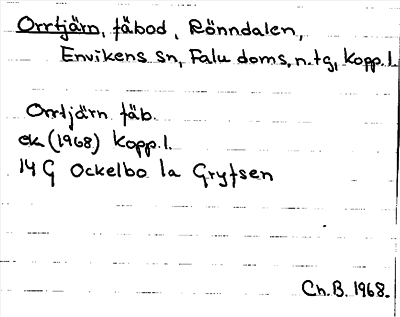 Orrtjärn, fäbod, Rönndalen,
Envikens sn, Falu doms. n. tg, Kopp. l.
Orrtjärn fäb.
ek (1968) Kopp. l.
14 G Ockelbo 1a Gryfsen
Ch. B. 1968.